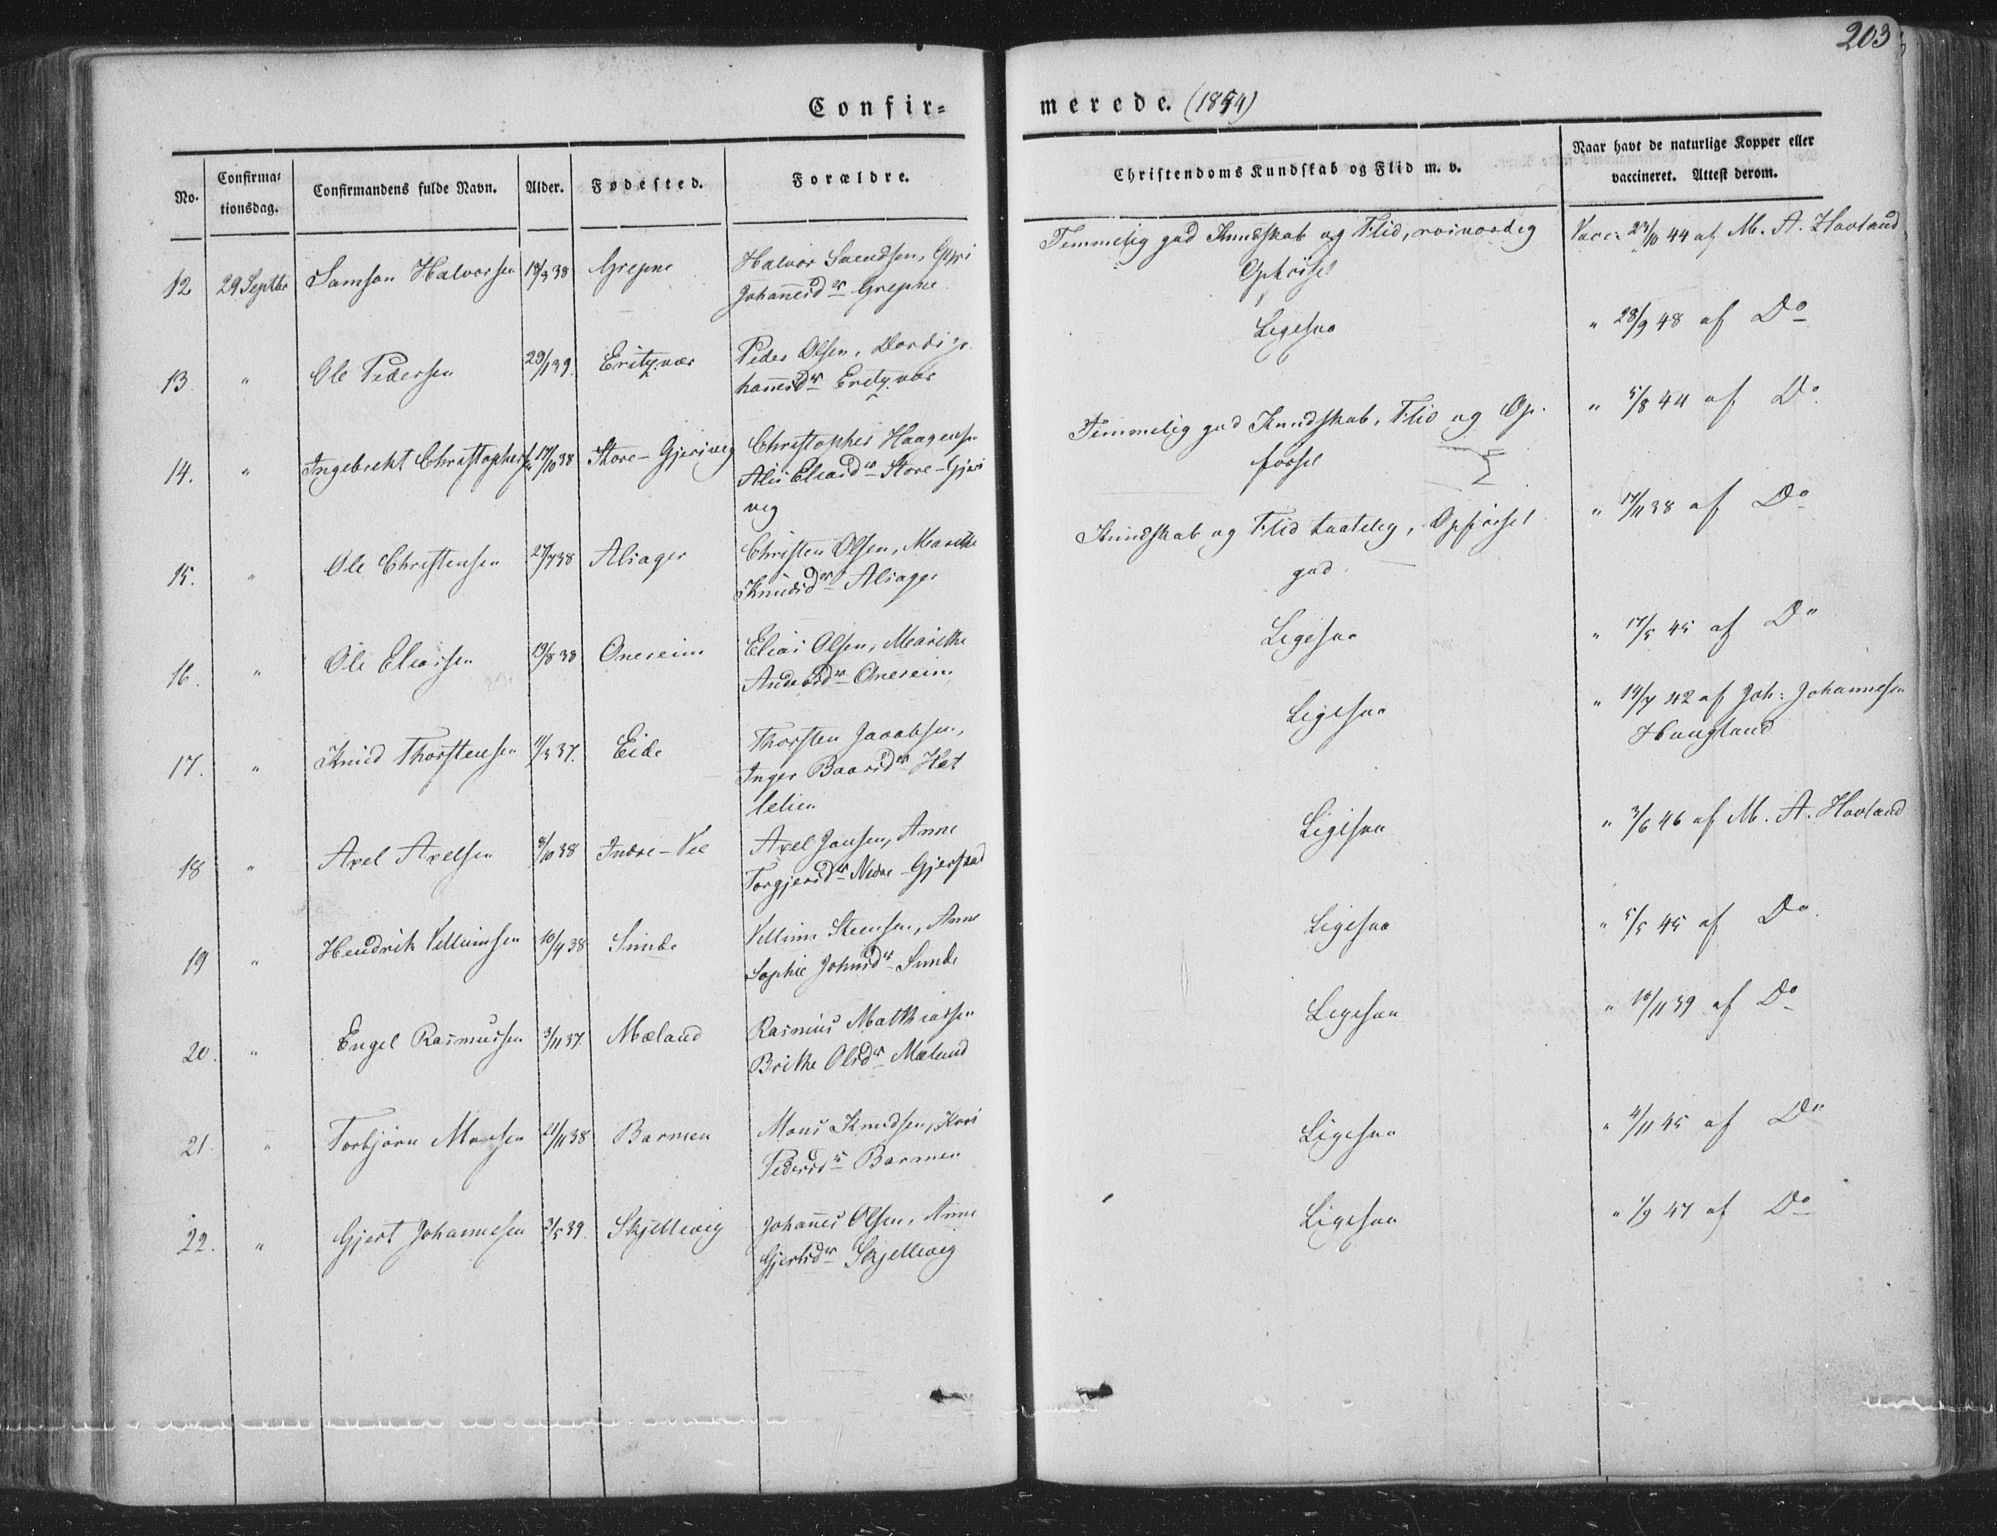 203
Confir= merede. (1854)
No. Confirma- tionsdag. Confirmandens fulde Navn. Alder. Fødested. Forældre. Christendoms Kundskab og Flid m. v. Naar havt de naturlige Kopper eller vaccineret. Attest derom.
12 29 Septbr Samson Halvorsen 18/3 38 Grepne Halvor Svendsen, Guri
Johannesdr Grephe
Temmelig god Kundskab og Flid, rosværdig
Opførsel
Vacc. 23/10 44 af M. A. Hovland
13. " Ole Pedersen 29/1 39. Peder Olsen, Dordi Jo
hannesdr
Ligesaa " 28/9 48 af Do
14. " Ingebreht Christophersen 17/10 38 Store-Gjerivig Christopher Haagensen
Store-Gjeri
vig
Temmelig god Kundskab, Flid og Op-
førsel
" 5/8 44 af Do
15. " Ole Christensen 27/7 38 Alsager Christen Olsen, Marithe
Knudsdr Alsager
Kundskab og Flid taalelig, Opførsel
god.
" 17/11 38 af Do
16. " Ole Eliassen 19/8 38 Onereim Elias Olsen, Marithe
Andersdr Onereim
Ligesaa " 17/5 45 af Do
17. " Knud Thorstensen 11/3 37. Eide Thorsten Jacobsen,
Inger Baarsdr Het
lelien
Ligesaa " 14/7 42 af Joh: Johannesen
Haugland
18 " Axel Axelsen 8/10 38 Indre-Vee Axel Jansen, Anne
Torgjersdr Nedre-Gjerstad
Ligesaa " 3/6 46 af M. A. Hovland
19 " Hendrik Villumsen 10/4 38 Sunde Villum Steensen, Anne
Sophie Johnsdr Sunde
Ligesaa " 5/5 45 af Do.
20. " Engel Rasmussen 3/11 37. Mæland Rasmus Mathiassen
Brithe Olsdr Mæland
Ligesaa " 10/11 39 af Do
21. " Torbjørn Monsen 21/11 38 Barmen Mons Knudsen, Kari
Pedersdr Barmen
Ligesaa " 4/11 45 af Do
22. " Gjert Johannesen 3/5 39. Skjellevig Johannes Olsen, Anne
Gjertsdr Skjellevig
Ligesaa " 1/9 47 af Do